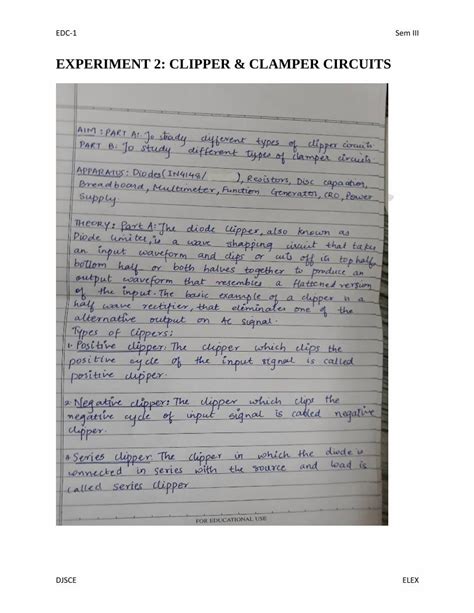 EDC-1 Sem III
EXPERIMENT 2: CLIPPER & CLAMPER CIRCUITS
AIM : PART A: To study different types of clipper circuits
PART B: To study different types of clamper circuits
APPARATUS: Diodes (1N4148/ ), Resistors, Disc capacitors,
Breadboard, Multimeter, Function Generator, CRO, Power
Supply
THEORY: Part A: The diode clipper, also known as
Diode limiter, is a wave shapping circuit that takes
an input waveform and clips or cuts off its top half,
bottom half or both halves together to produce an
output waveform that resembles a flattened version
of the input. The basic example of a clipper is a
half wave rectifier, that eliminates one of the
alternative output on AC signal.
Types of Clippers:
1. Positive clipper: The clipper which clips the
positive cycle of the input signal is called
positive clipper.
2. Negative clipper: The clipper which clips the
negative cycle of input signal is called negative
clipper.
Series clipper: The clipper in which the diode is
connected in series with the source and load is
called series clipper
FOR EDUCATIONAL USE
DJSCE ELEX